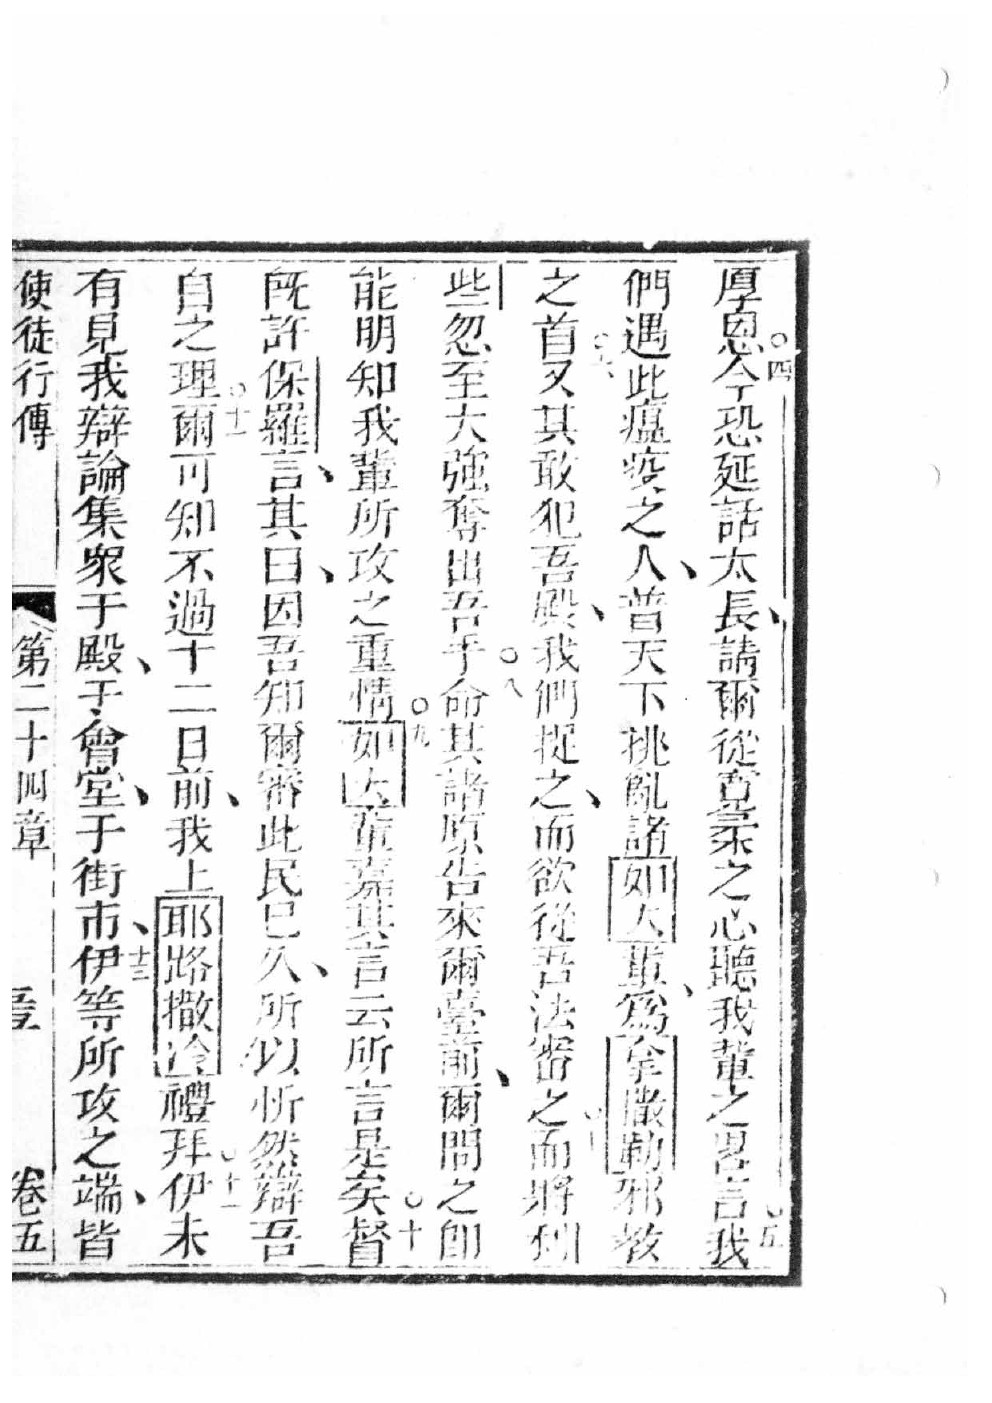 厚恩○四今恐延話太長、請爾從寬柔之心聽我輩之畧言○五我
們遇此瘟疫之人、普天下挑亂諸如大輩、為拿撒勒邪教
之首○六又其敢犯吾殿、我們捉之、而欲從吾法審之○七而將利
些忽至大強奪出吾手○八命其諸原告來爾臺前、爾問之卽
能明知我輩所攻之重情○九如大輩嘉其言云所言是矣○十督
旣許保羅言、其曰、因吾知爾審此民已久、所以忻然辯吾
自之理○十一爾可知不過十二日前、我上耶路撒冷禮拜○十二伊未
有見我辯論集衆于殿、于會堂、于街市、○十三伊等所攻之端、皆
使徒行傳 第二十四章 卷五